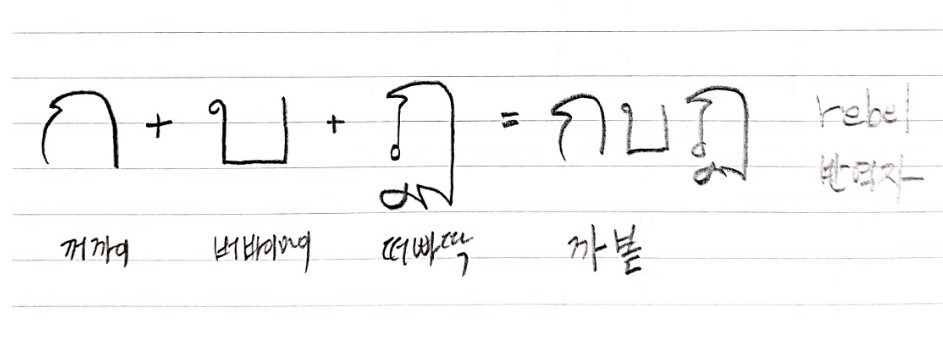 ก + บ + ฏ = กบฏ rebel
반역자
꺼까이 버바이마이 떠빠딱 까볻